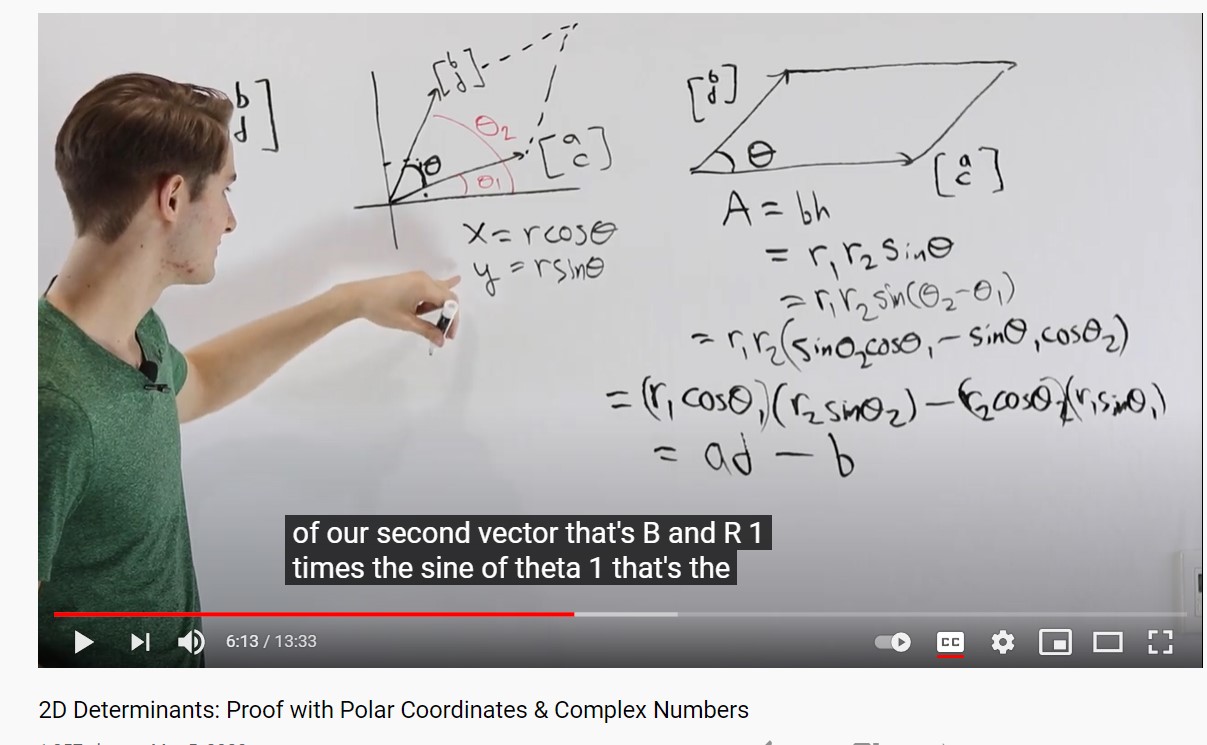 b
d ]
[ b
d ]
θ₂
θ
[ a
c ]
θ₁
x = r cosθ
y = r sinθ
[ b
d ]
θ
[ a
c ]
A = bh
= r₁ r₂ sinθ
= r₁ r₂ sin(θ₂-θ₁)
= r₁ r₂ (sinθ₂cosθ₁ - sinθ₁cosθ₂)
= (r₁ cosθ₁)(r₂ sinθ₂) - (r₂cosθ₂)(r₁sinθ₁)
= ad - b
of our second vector that's B and R 1
times the sine of theta 1 that's the
6:13 / 13:33
CC
2D Determinants: Proof with Polar Coordinates & Complex Numbers